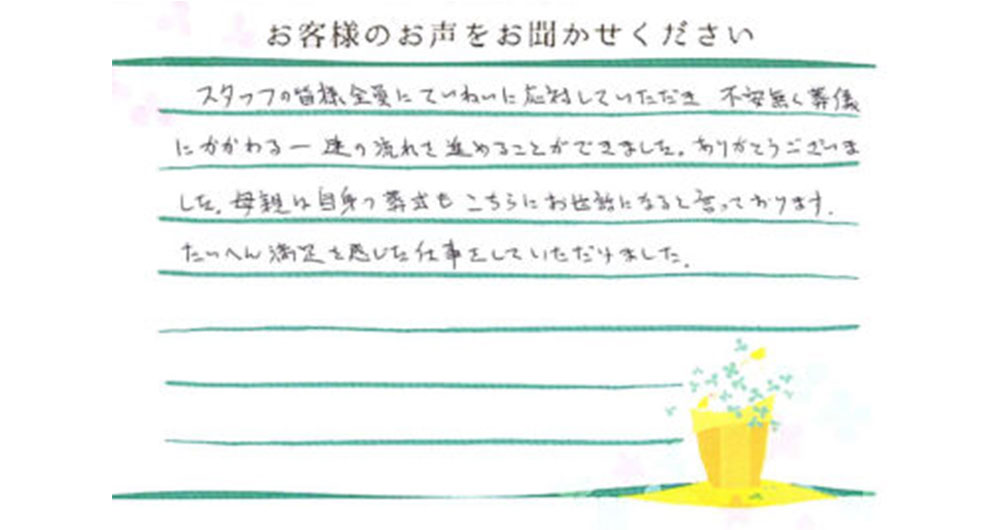 お客様のお声をお聞かせください
スタッフの皆様全員にていねいに応対していただき 不安無く葬儀
にかかわる一連の流れを進めることができました。ありがとうございま
した。母親は自身の葬式もこちらにお世話になると言っております。
たいへん満足を感じた仕事をしていただけました。